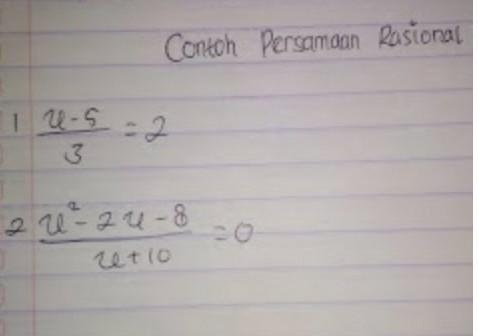 Contoh Persamaan Rasional
1 x-5/3 = 2
2 x²-2x-8/x+10 = 0